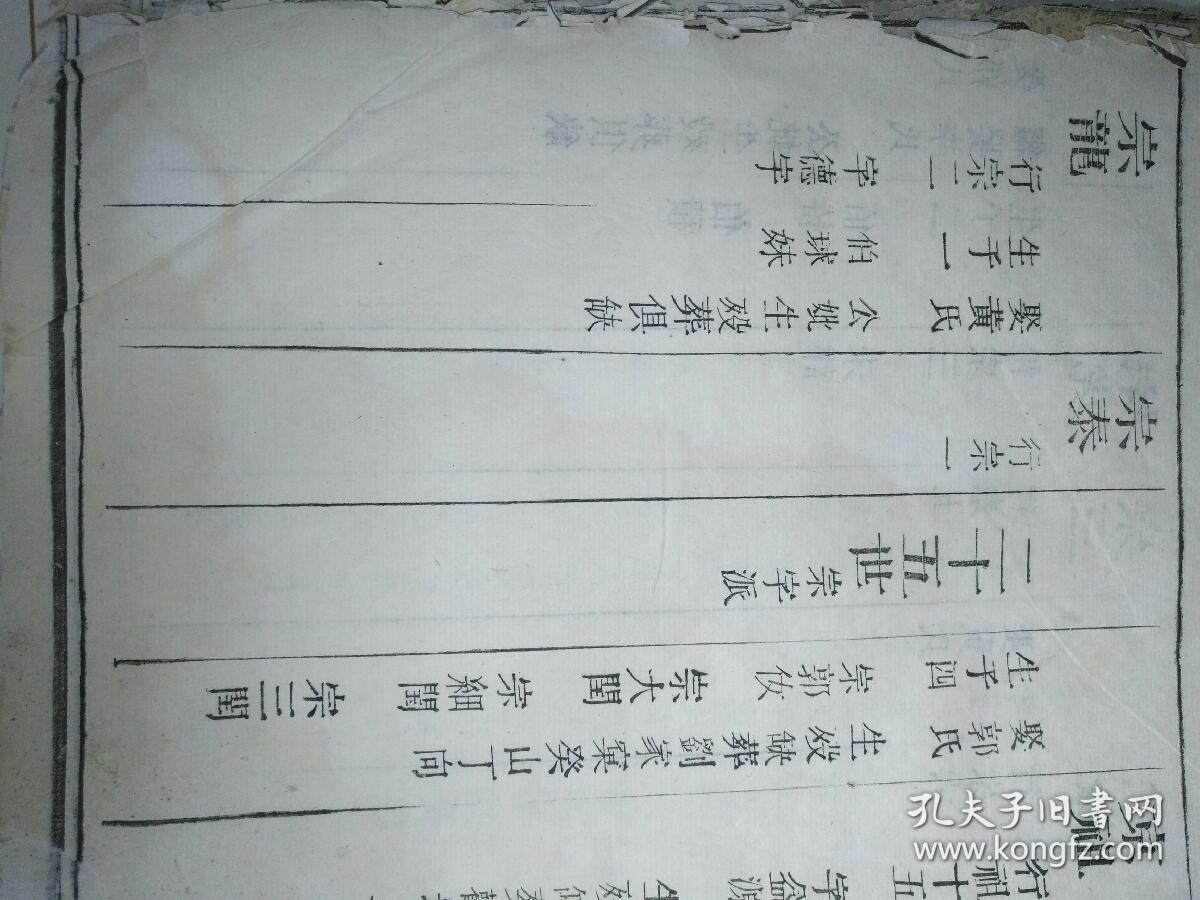 祖
行祖十五 字益源
娶郭氏 生歿缺葬劉家窠癸山丁向
生子四 宗郭伩 宗大閏 宗細閏 宗三閏
二十五世 宗字派
宗泰
行宗一
娶黃氏 公妣生殁葬俱缺
生子一 伯球妹
宗龍
行宗二 字德字
孔夫子旧书网
www.kongfz.com